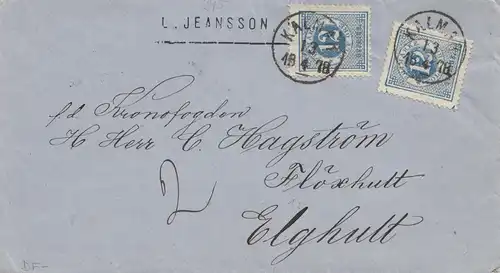 L. JEANSSON
KALMAR
13
18 4 78
12
KALMAR
13
18 4 78
12
f.d. Kronofogden
H Herr C. Hagström
Flöxhult
2
Elghult
BF-